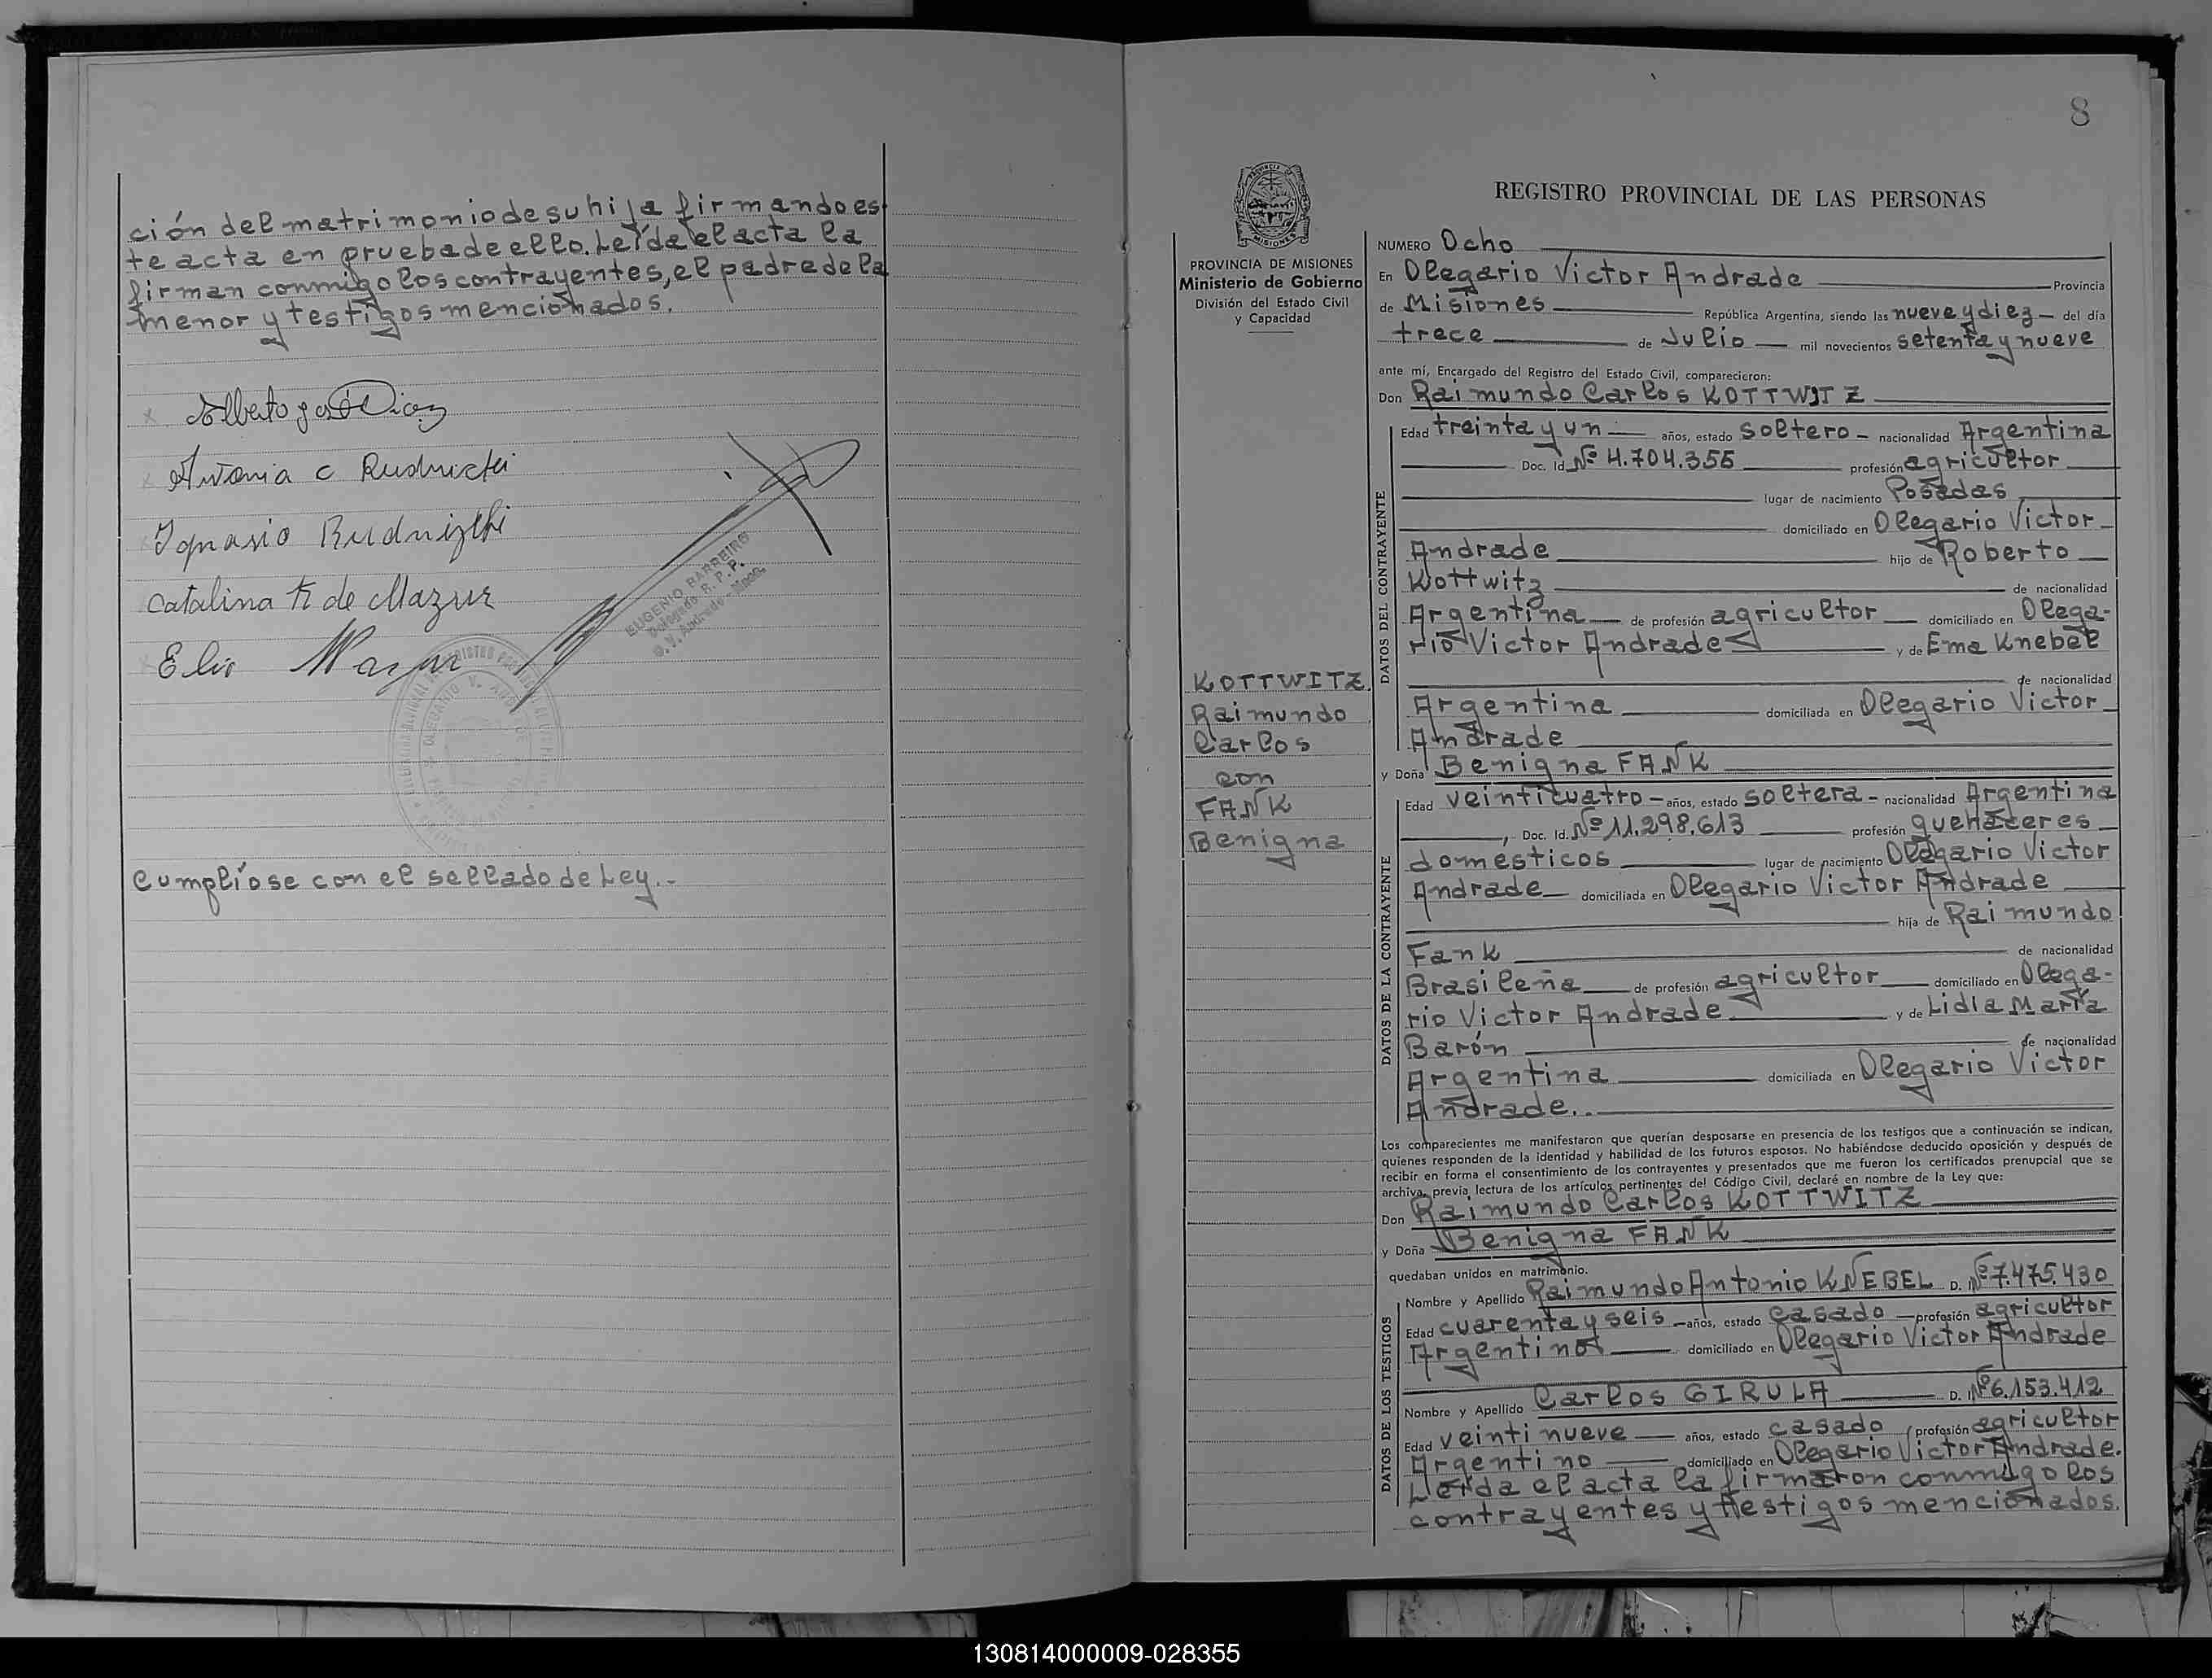 ción del matrimonio de su hija firmando es
te acta en prueba de ello. Leída el acta la
firman conmigo los contrayentes, el padre de la
menor y testigos mencionados.
Antonia C
Ignasio
Catalina K de Mazur
EUGENIO BARREIRO
Delegado R. P. P.
O. V. Andrade - Mnes.
Cumplióse con el sellado de Ley.-
8
PROVINCIA DE MISIONES
Ministerio de Gobierno
División del Estado Civil
y Capacidad
KOTTWITZ
Raimundo
Carlos
con
FANK
Benigna
REGISTRO PROVINCIAL DE LAS PERSONAS
NUMERO Ocho
En Olegario Victor Andrade Provincia
de Misiones República Argentina, siendo las nueve y diez del día
trece de Julio mil novecientos setenta y nueve
ante mí, Encargado del Registro del Estado Civil, comparecieron:
Don Raimundo Carlos KOTTWITZ
DATOS DEL CONTRAYENTE
Edad treinta y un años, estado soltero nacionalidad Argentina
Doc. Id. Nº 4.704.355 profesión agricultor
lugar de nacimiento Posadas
domiciliado en Olegario Victor
Andrade hijo de Roberto
Kottwitz de nacionalidad
Argentina de profesión agricultor domiciliado en Olega-
rio Victor Andrade y de Ema Knebel
de nacionalidad
Argentina domiciliada en Olegario Victor
Andrade
y Doña Benigna FANK
DATOS DE LA CONTRAYENTE
Edad veinticuatro años, estado soltera nacionalidad Argentina
, Doc. Id. Nº 11.298.613 profesión quehaceres
domesticos lugar de nacimiento Olegario Victor
Andrade domiciliada en Olegario Victor Andrade
hija de Raimundo
Fank de nacionalidad
Brasileña de profesión agricultor domiciliado en Olega-
rio Victor Andrade y de Lidia María
Barón de nacionalidad
Argentina domiciliada en Olegario Victor
Andrade..
Los comparecientes me manifestaron que querían desposarse en presencia de los testigos que a continuación se indican,
quienes responden de la identidad y habilidad de los futuros esposos. No habiéndose deducido oposición y después de
recibir en forma el consentimiento de los contrayentes y presentados que me fueron los certificados prenupcial que se
archiva, previa lectura de los artículos pertinentes del Código Civil, declaré en nombre de la Ley que:
Don Raimundo Carlos KOTTWITZ
y Doña Benigna FANK
quedaban unidos en matrimonio.
DATOS DE LOS TESTIGOS
Nombre y Apellido Raimundo Antonio KNEBEL D. Nº 7.475.430
Edad cuarenta y seis años, estado casado profesión agricultor
Argentino domiciliado en Olegario Victor Andrade
Nombre y Apellido Carlos GIRULA D. Nº 6.153.412
Edad veintinueve años, estado casado profesión agricultor
Argentino domiciliado en Olegario Victor Andrade.
Leída el acta la firmaron conmigo los
contrayentes y testigos mencionados.
130814000009-028355